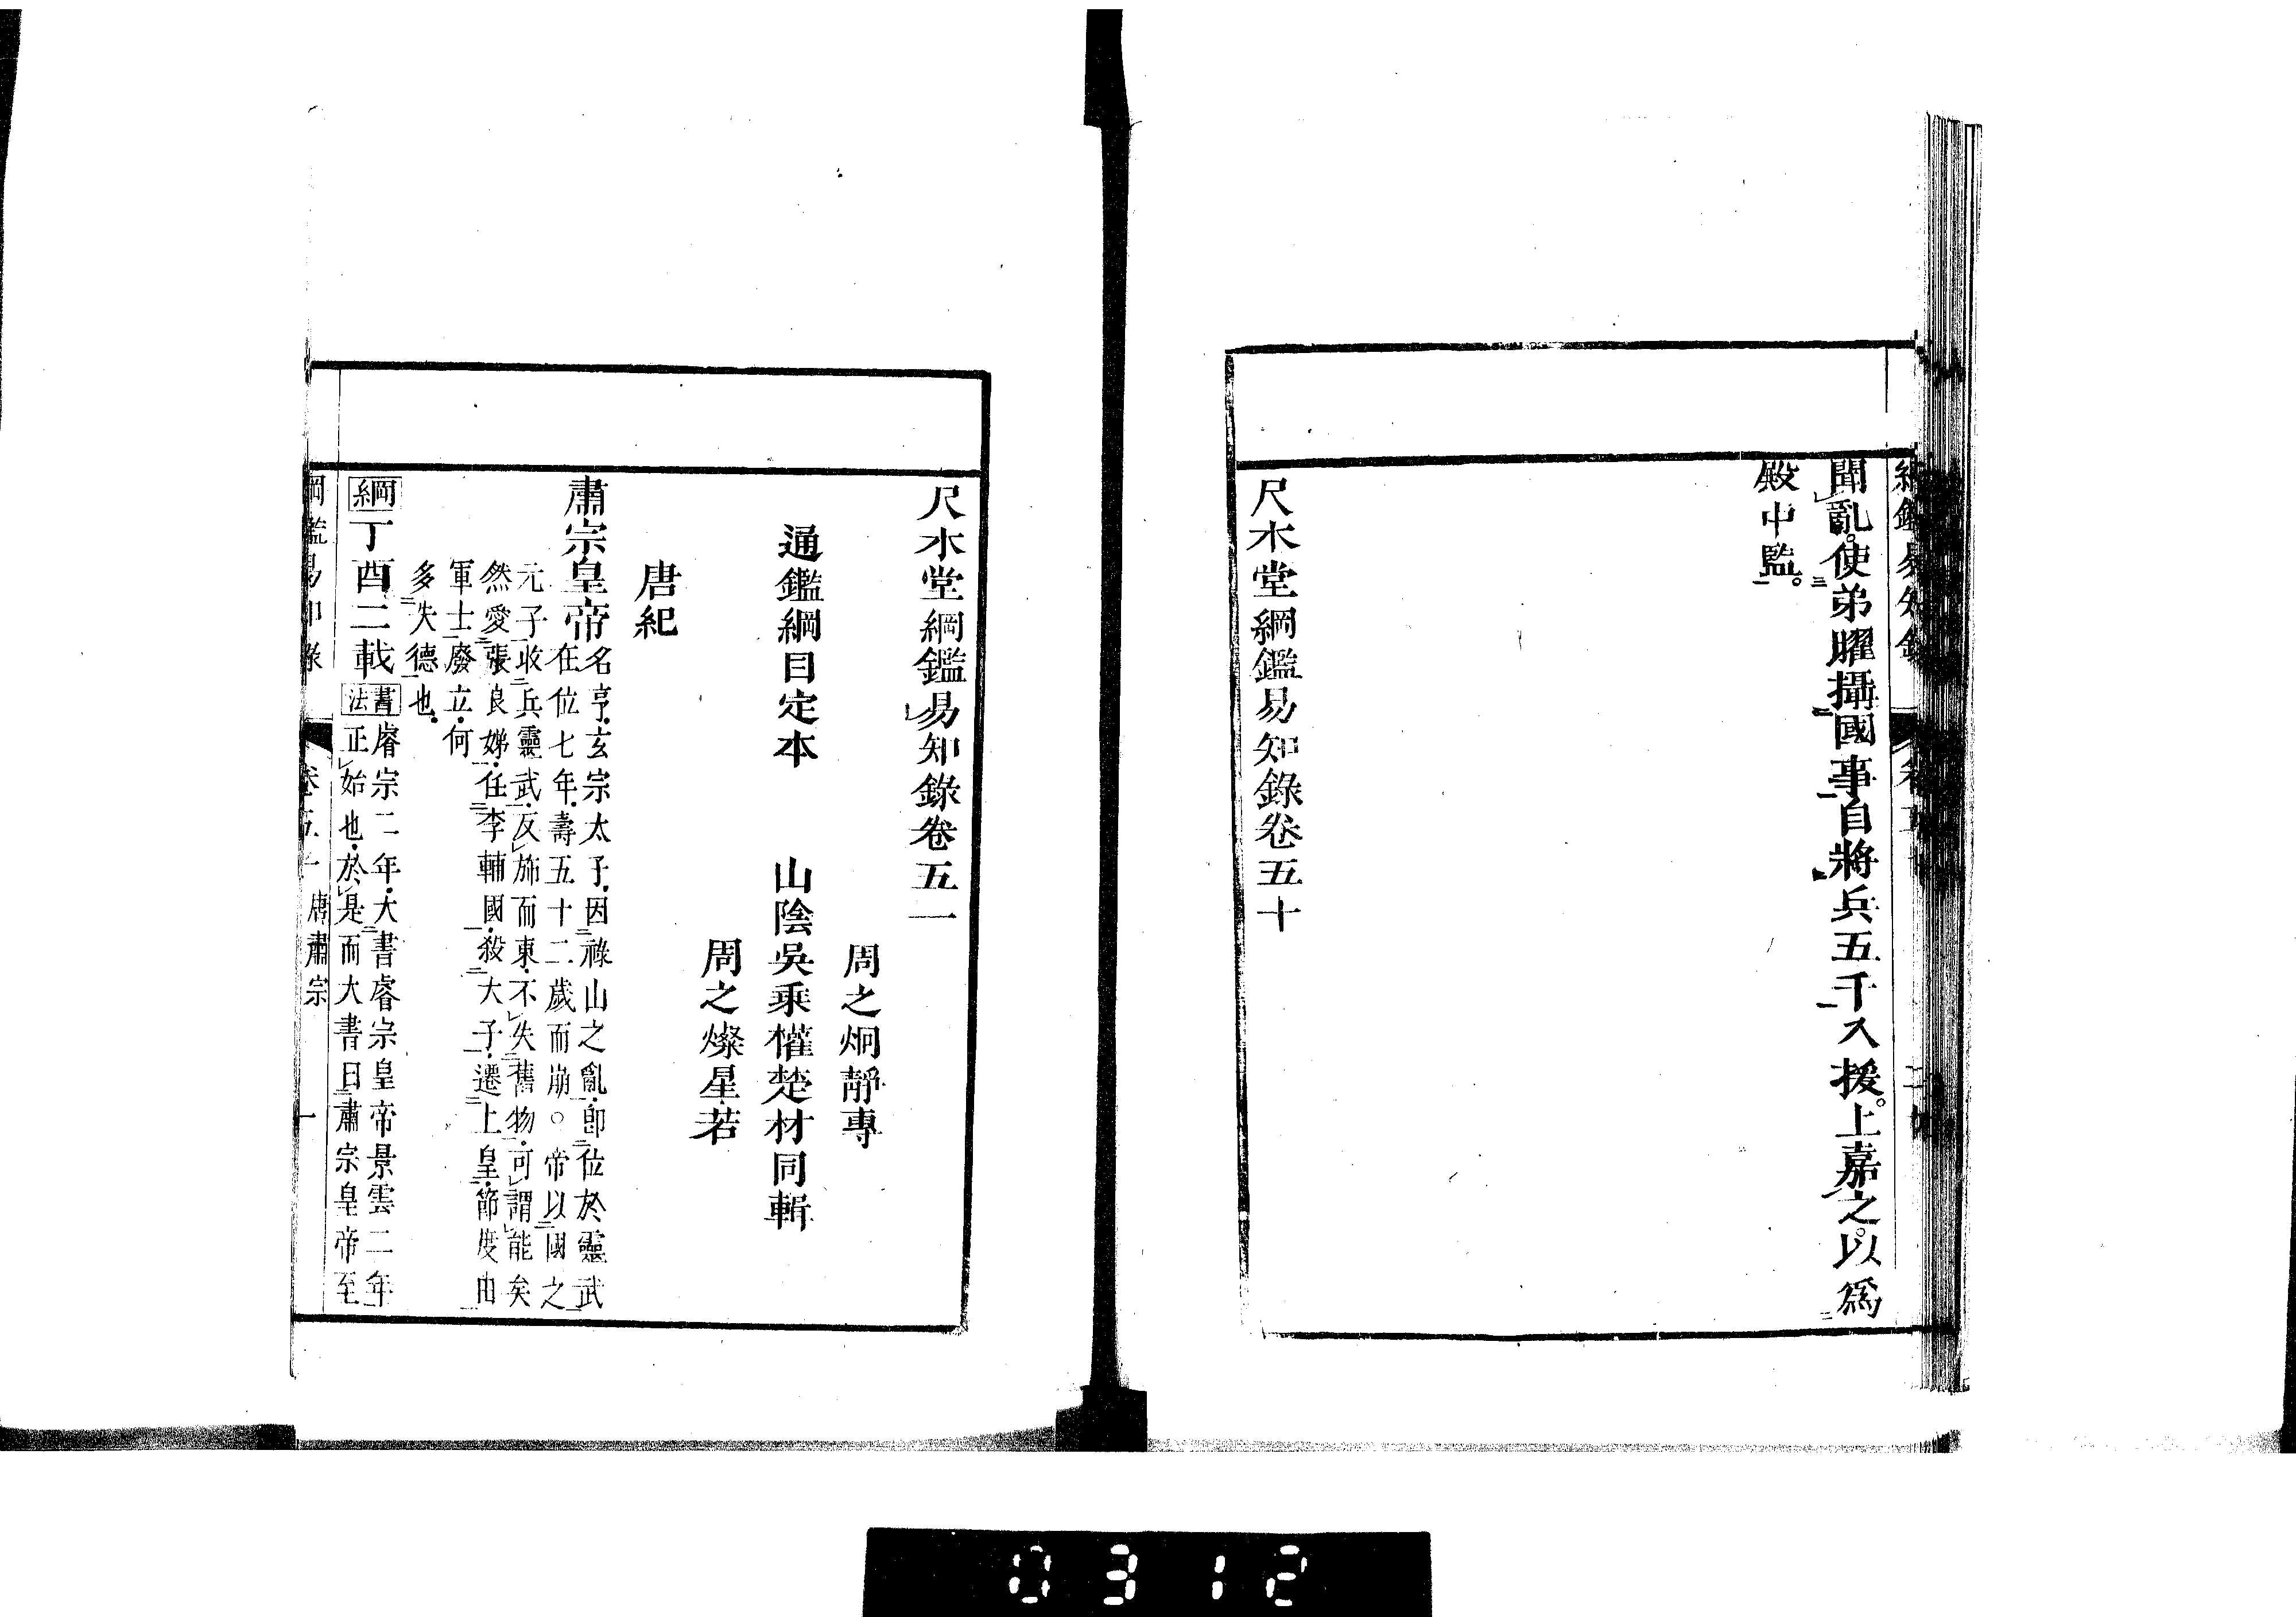 聞亂。使弟曜攝國事自將兵五千入援。上嘉之。以爲
殿中監。
尺木堂綱鑑易知錄卷五十
尺木堂綱鑑易知錄卷五一
周之炯靜專
通鑑綱目定本 山陰吳乘權楚材同輯
周之燦星若
唐紀
肅宗皇帝
名亨.玄宗太子.因祿山之亂.卽位於靈武
在位七年.壽五十二歲而崩○帝以國之
元子.收兵靈武.反斾而東.不失舊物.可謂能矣
然愛張良娣.任李輔國.殺太子.遷上皇.節度由
軍士廢立.何
多失德也.
綱丁酉二載
書法
睿宗二年.大書睿宗皇帝景雲二年
正始也.於是而大書曰肅宗皇帝至
綱鑑易知錄 卷五十 唐肅宗 一
0312